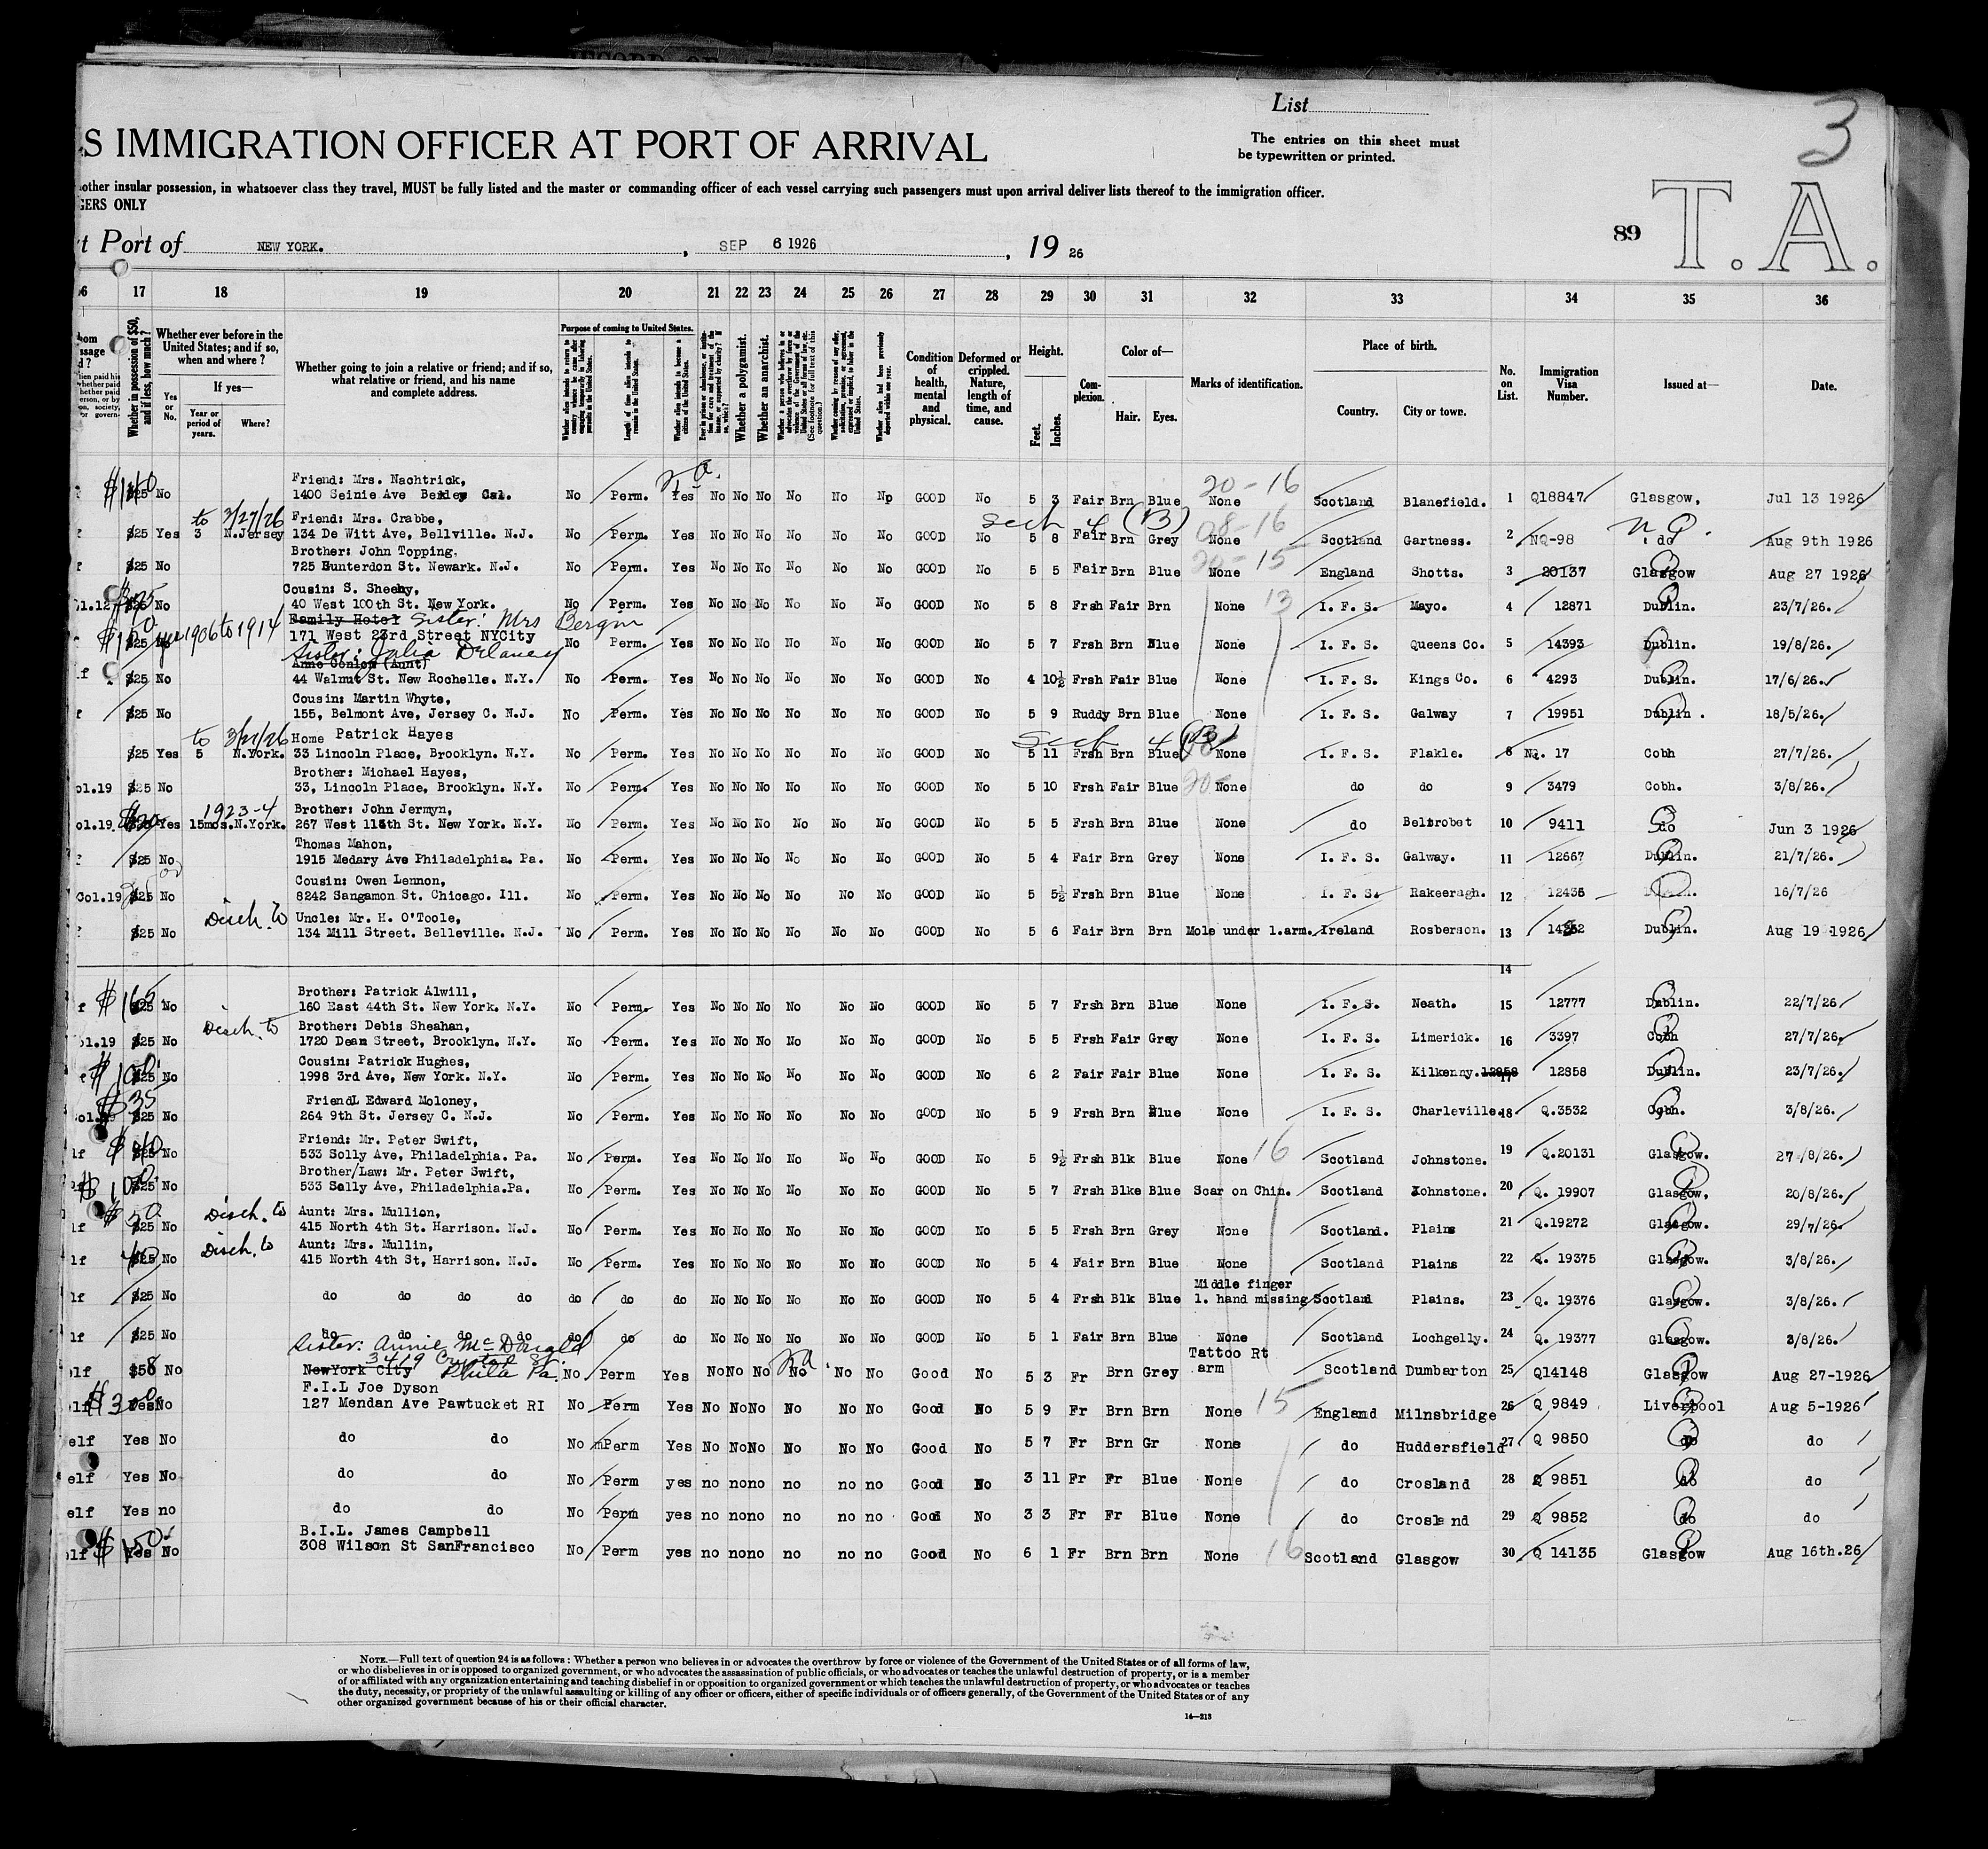 List
3
S IMMIGRATION OFFICER AT PORT OF ARRIVAL
The entries on this sheet must
be typewritten or printed.
other insular possession, in whatsoever class they travel, MUST be fully listed and the master or commanding officer of each vessel carrying such passengers must upon arrival deliver lists thereof to the immigration officer.
GERS ONLY
89 T. A.
t Port of NEW YORK. , SEP 6 1926 , 19 26
17 18 19 20 21 22 23 24 25 26 27 28 29 30 31 32 33 34 35 36
Whether in possession of $50, and if less, how much?
Whether ever before in the United States; and if so, when and where?
If yes—
Yes or No.
Year or period of years.
Where?
Whether going to join a relative or friend; and if so, what relative or friend, and his name and complete address.
Purpose of coming to United States.
Length of time alien intends to remain in the United States.
Whether a polygamist.
Whether an anarchist.
Condition of health, mental and physical.
Deformed or crippled. Nature, length of time, and cause.
Height.
Feet. Inches.
Complexion.
Color of—
Hair. Eyes.
Marks of identification.
Place of birth.
Country. City or town.
No. on List.
Immigration Visa Number.
Issued at—
Date.
Friend: Mrs. Nachtrick,
$25 No 1400 Seinie Ave Cal. No Perm. Yes No No No No No No GOOD No 5 3 Fair Brn Blue None Scotland Blanefield. 1 Q18847 Glasgow, Jul 13 1926
20-16
to 3/27/26 Friend: Mrs. Crabbe,
$25 Yes 3 N.Jersey 134 De Witt Ave, Bellville. N.J. No Perm. Yes No No No No No No GOOD No 5 8 Fair Brn Grey None Scotland Gartness. 2 NQ-98 do Aug 9th 1926
Brother: John Topping.
$25 No 725 Hunterdon St. Newark. N.J. No Perm. Yes No No No No No No GOOD No 5 5 Fair Brn Blue None England Shotts. 3 20137 Glasgow Aug 27 1926
20-15
Cousin: S. Sheehy,
$25 No 40 West 100th St. New York. No Perm. Yes No No No No No No GOOD No 5 8 Frsh Fair Brn None 13 I. F. S. Mayo. 4 12871 Dublin. 23/7/26.
Family Hotel Sister: Mrs Bergin
$25 1906 to 1914 171 West 23rd Street NYCity No Perm. Yes No No No No No No GOOD No 5 7 Frsh Brn Blue None I. F. S. Queens Co. 5 14393 Dublin. 19/8/26.
Sister: Julia Delaney
Anne Conlon (Aunt)
$25 No 44 Walnut St. New Rochelle. N.Y. No Perm. Yes No No No No No No GOOD No 4 10½ Frsh Fair Blue None I. F. S. Kings Co. 6 4293 Dublin. 17/6/26.
Cousin: Martin Whyte,
$25 No 155, Belmont Ave, Jersey C. N.J. No Perm. Yes No No No No No No GOOD No 5 9 Ruddy Brn Blue None I. F. S. Galway 7 19951 Dublin. 18/5/26.
Home Patrick Hayes
$25 Yes 5 N.York. 33 Lincoln Place, Brooklyn. N.Y. No Perm. Yes No No No No No No GOOD No 5 11 Frsh Brn Blue None I. F. S. Flakle. 8 NQ. 17 Cobh 27/7/26.
Brother: Michael Hayes,
ol.19 $25 No 33, Lincoln Place, Brooklyn. N.Y. No Perm. Yes No No No No No No GOOD No 5 10 Frsh Fair Blue None do do 9 3479 Cobh. 3/8/26.
1923-4 Brother: John Jermyn,
ol.19 Yes 15mos. N.York. 267 West 115th St. New York. N.Y. No Perm. Yes No No No No No No GOOD No 5 5 Frsh Brn Blue None do Beltrobet 10 9411 do Jun 3 1926
Thomas Mahon,
$25 No 1915 Medary Ave Philadelphia. Pa. No Perm. Yes No No No No No No GOOD No 5 4 Fair Brn Grey None I. F. S. Galway. 11 12667 Dublin. 21/7/26.
Cousin: Owen Lennon,
Col.19 $25 No 8242 Sangamon St. Chicago. Ill. No Perm. Yes No No No No No No GOOD No 5 5½ Frsh Brn Blue None I. F. S. Rakeeragh. 12 12436 16/7/26
Disch. to Uncle: Mr. H. O'Toole,
$25 No 134 Mill Street. Belleville. N.J. No Perm. Yes No No No No No No GOOD No 5 6 Fair Brn Brn Mole under l.arm. Ireland Rosberson. 13 Dublin. Aug 19 1926
14
Brother: Patrick Alwill,
$165 $25 No 160 East 44th St. New York. N.Y. No Perm. Yes No No No No No No GOOD No 5 7 Frsh Brn Blue None I. F. S. Neath. 15 12777 Dublin. 22/7/26
Disch. to Brother: Debis Sheahan,
ol.19 $25 No 1720 Dean Street, Brooklyn. N.Y. No Perm. Yes No No No No No No GOOD No 5 5 Frsh Fair Grey None I. F. S. Limerick. 16 3397 Cobh 27/7/26.
Cousin: Patrick Hughes,
$100 $25 No 1998 3rd Ave, New York. N.Y. No Perm. Yes No No No No No No GOOD No 6 2 Fair Fair Blue None I. F. S. Kilkenny. 12858 17 12858 Dublin. 23/7/26.
FriendL Edward Moloney,
$35 $25 No 264 9th St. Jersey C. N.J. No Perm. Yes No No No No No No GOOD No 5 9 Frsh Brn Blue None I. F. S. Charleville. 18 Q.3532 Cobh. 3/8/26.
Friend: Mr. Peter Swift,
$25 No 533 Solly Ave, Philadelphia. Pa. No Perm. Yes No No No No No No GOOD No 5 9½ Frsh Blk Blue None 16 Scotland Johnstone. 19 Q.20131 Glasgow. 27/8/26.
Brother/Law: Mr. Peter Swift,
$25 No 533 Solly Ave, Philadelphia.Pa. No Perm. Yes No No No No No No GOOD No 5 7 Frsh Blke Blue Scar on Chin. Scotland Johnstone. 20 Q. 19907 Glasgow, 20/8/26.
Disch. to Aunt: Mrs. Mullion,
lf $25 No 415 North 4th St. Harrison. N.J. No Perm. Yes No No No No No No GOOD No 5 5 Frsh Brn Grey None Scotland. Plains 21 Q.19272 Glasgow. 29/7/26.
Disch. to Aunt: Mrs. Mullin,
lf $25 No 415 North 4th St, Harrison. N.J. No Perm. Yes No No No No No No GOOD No 5 4 Fair Brn Blue None Scotland Plains 22 Q. 19375 Glasgow. 3/8/26.
Middle finger
lf $25 No do do do do do do do No No No No No No GOOD No 5 4 Frsh Blk Blue l. hand missing Scotland Plains. 23 Q. 19376 Glasgow. 3/8/26.
lf $25 No do do do do do do do No No No No No No GOOD No 5 1 Fair Brn Blue None Scotland Lochgelly. 24 Q. 19377 Glasgow. 3/8/26.
Sister: Annie McDonald Tattoo Rt
elf $58 No NewYork City 3419 Phila Pa. No Perm Yes No No No No No No Good No 5 3 Fr Brn Grey arm Scotland Dumbarton 25 Q14148 Glasgow Aug 27-1926
F.I.L Joe Dyson
elf Yes No 127 Mendan Ave Pawtucket RI No Perm Yes No No No No No No Good No 5 9 Fr Brn Brn None 15 England Milnsbridge 26 Q 9849 Liverpool Aug 5-1926
elf Yes No do do No Perm Yes No No No No No No Good No 5 7 Fr Brn Gr None do Huddersfield 27 Q 9850 do do
elf Yes No do do No Perm yes no no no no no no Good No 3 11 Fr Fr Blue None do Crosland 28 Q 9851 do do
elf Yes no do do No Perm yes no no no no no no Good No 3 3 Fr Fr Blue None do Crosland 29 Q 9852 do do
B.I.L. James Campbell
elf $150 Yes No 308 Wilson St SanFrancisco No Perm yes no no no no no no Good No 6 1 Fr Brn Brn None 16 Scotland Glasgow 30 Q 14135 Glasgow Aug 16th.26
NOTE.—Full text of question 24 is as follows: Whether a person who believes in or advocates the overthrow by force or violence of the Government of the United States or of all forms of law,
or who disbelieves in or is opposed to organized government, or who advocates the assassination of public officials, or who advocates or teaches the unlawful destruction of property, or is a member
of or affiliated with any organization entertaining and teaching disbelief in or opposition to organized government or which teaches the unlawful destruction of property, or who advocates or teaches
the duty, necessity, or propriety of the unlawful assaulting or killing of any officer or officers, either of specific individuals or of officers generally, of the Government of the United States or of any
other organized government because of his or their official character.
14—213